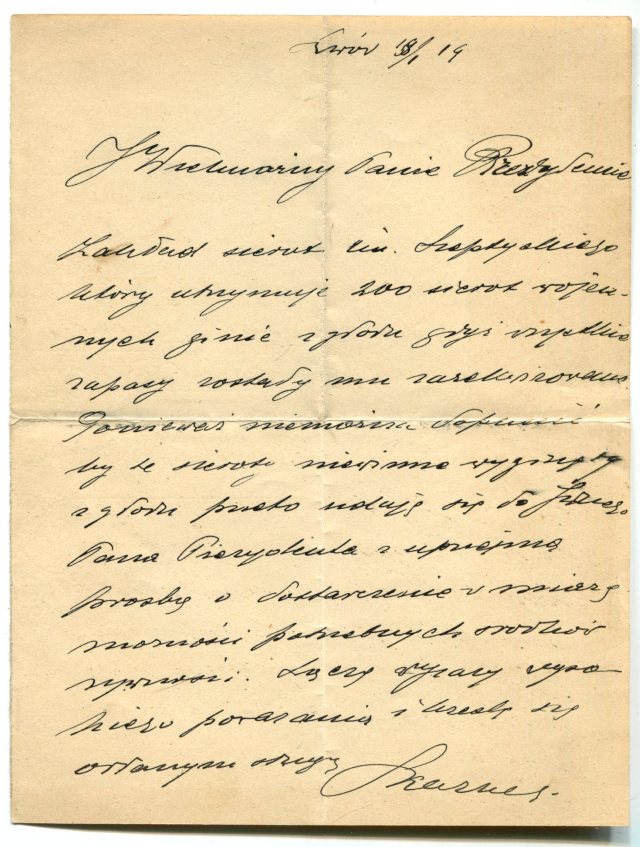 Lwów 18/1 19
JWielmożny Panie Prezydencie
Zakład sierot im. Szeptyckiego
który utrzymuje 200 sierot wojen-
nych ginie z głodu gdyż wszystkie
zapasy zostały mu zarekwirowane.
Ponieważ niemożna dopuścić
by te sieroty niewinne wyginęły
z głodu przeto udaję się do JWnego
Pana Prezydenta z uprzejmą
prośbą o dostarczenie w miarę
możności potrzebnych środków
żywności. Łączę wyrazy wyso
kiego poważania i kreślę się
oddanym sługą